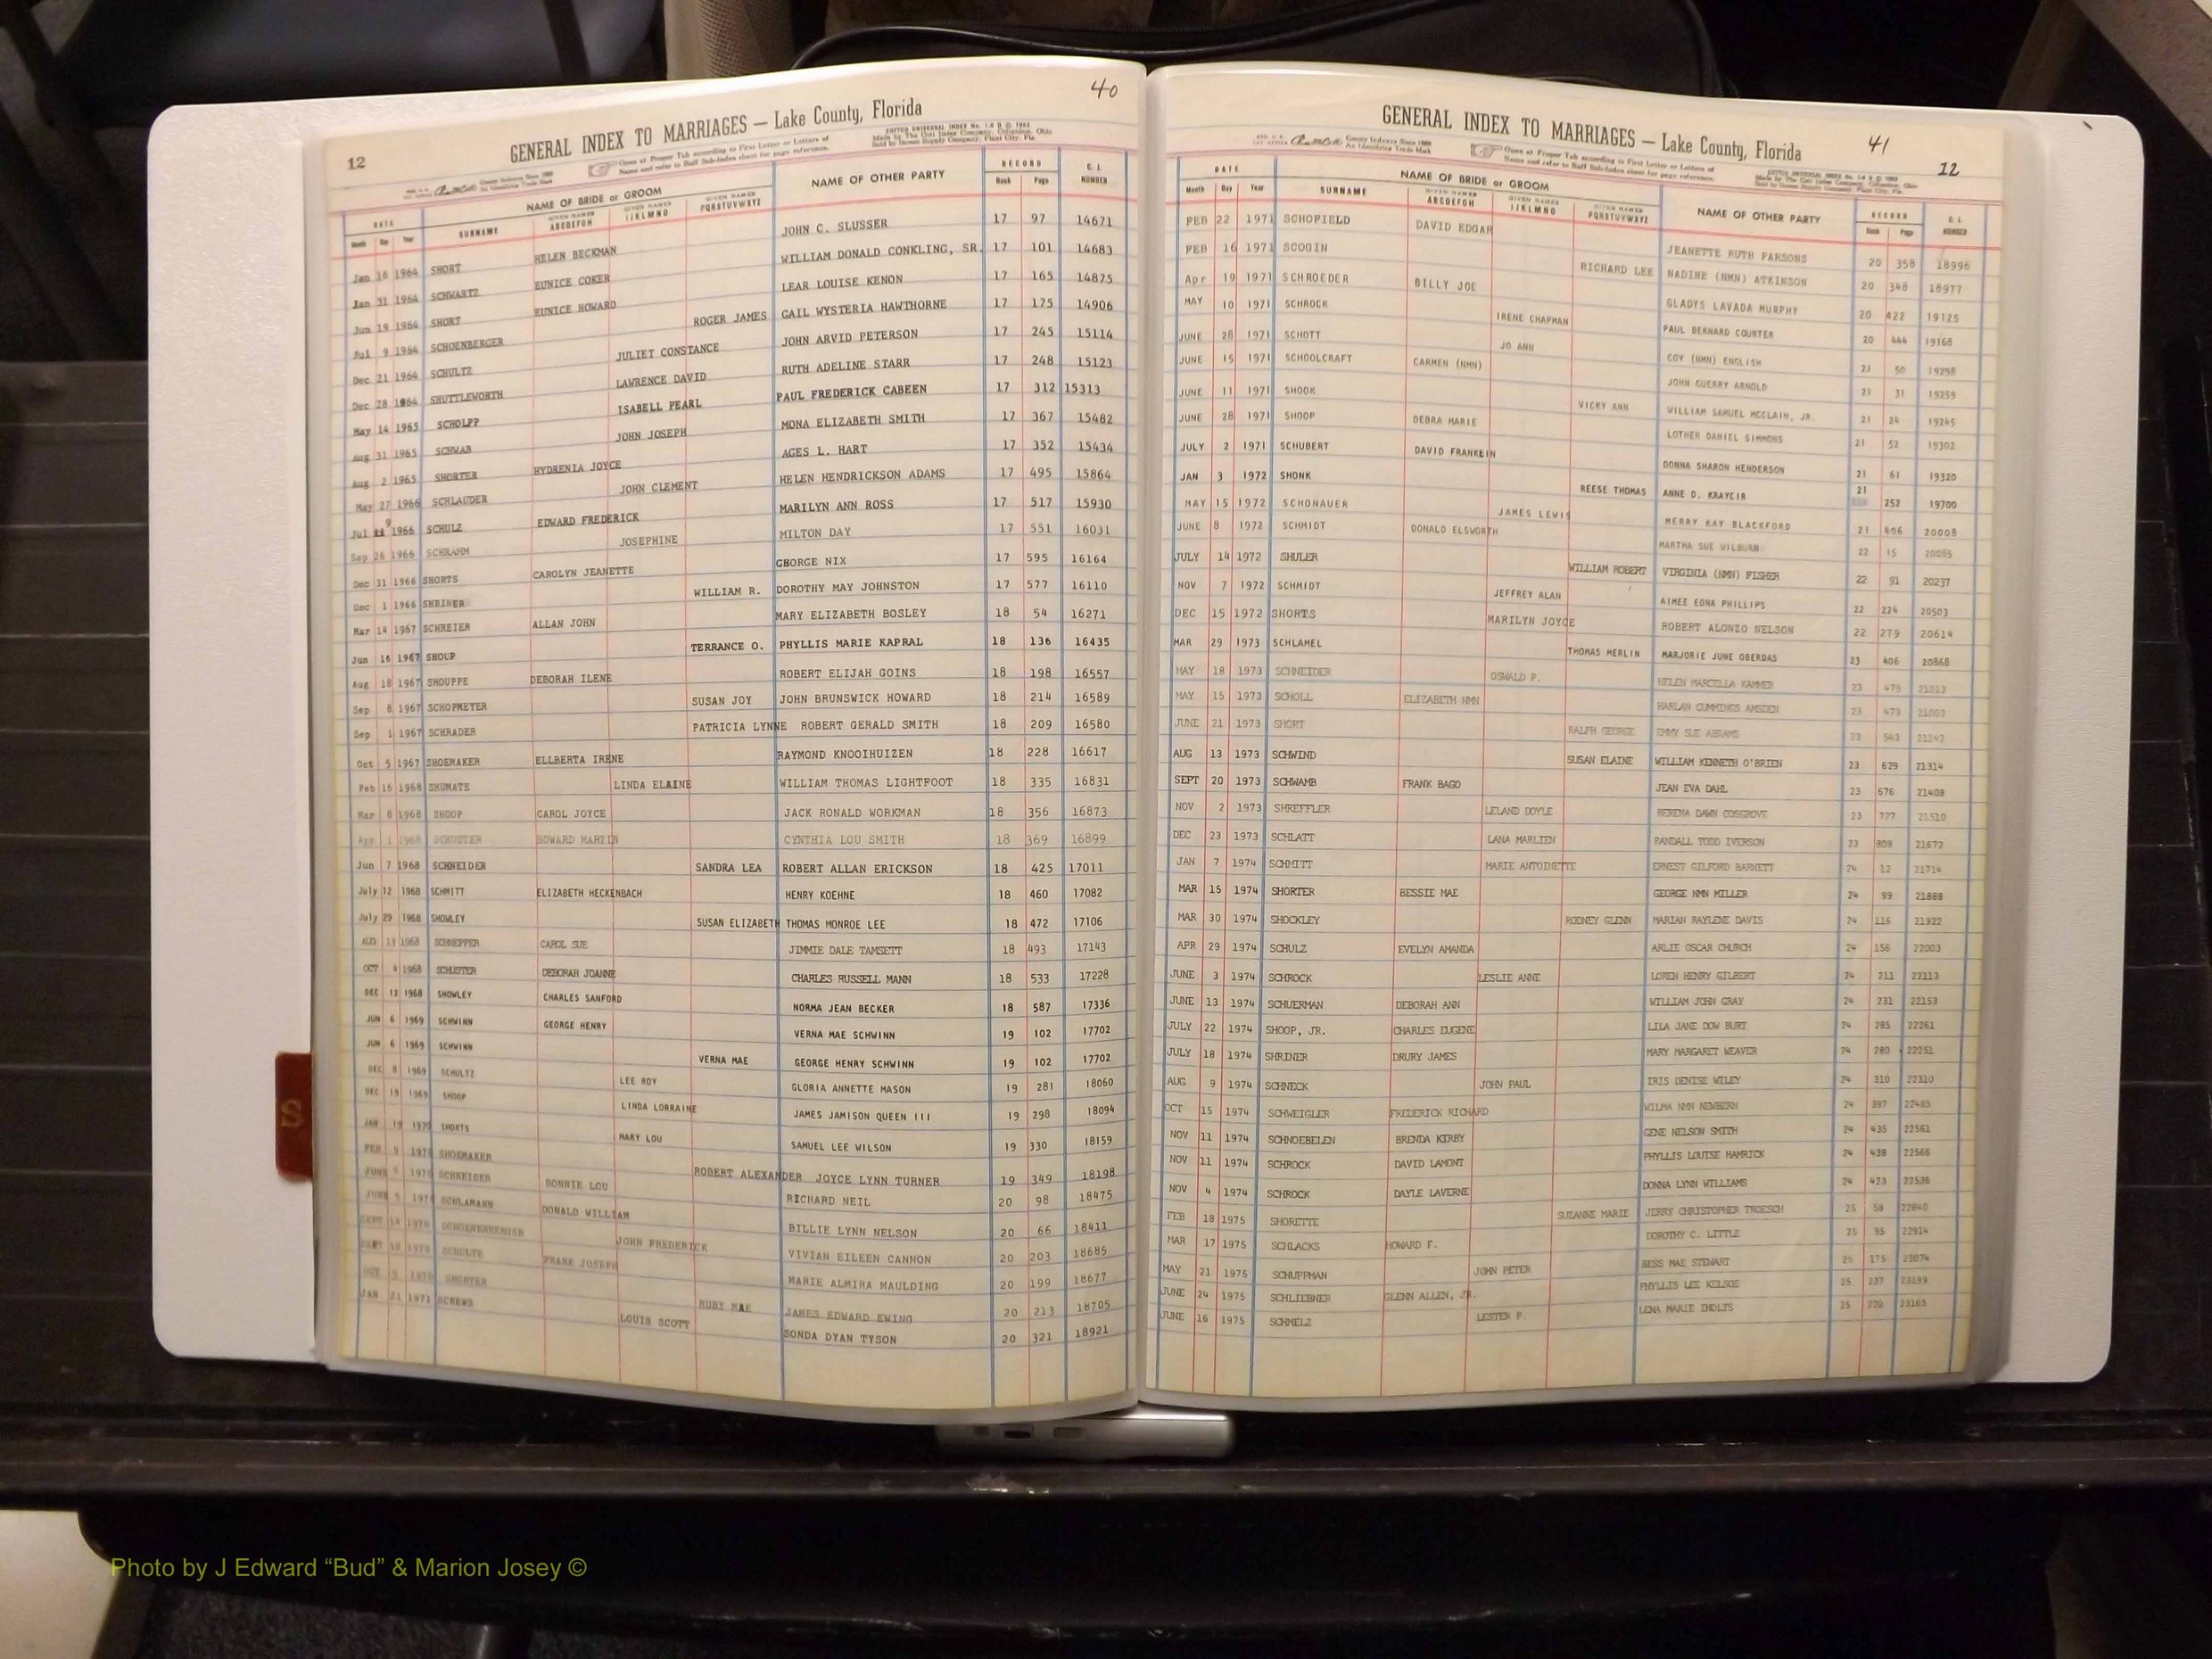 40
12
GENERAL INDEX TO MARRIAGES — Lake County, Florida
Open at Proper Tab according to First Letter or Letters of
Name and refer to Buff Sub-Index sheet for page reference.
DATE NAME OF BRIDE or GROOM NAME OF OTHER PARTY RECORD C. I. NUMBER
Month Day Year SURNAME GIVEN NAMES ABCDEFGH GIVEN NAMES IJKLMNO GIVEN NAMES PQRSTUVWXYZ Book Page
Jan 16 1964 SHORT HELEN BECKMAN JOHN C. SLUSSER 17 97 14671
Jan 31 1964 SCHWARTZ EUNICE COKER WILLIAM DONALD CONKLING, SR. 17 101 14683
Jun 19 1964 SHORT EUNICE HOWARD LEAR LOUISE KENON 17 165 14875
Jul 9 1964 SCHOENBERGER ROGER JAMES GAIL WYSTERIA HAWTHORNE 17 175 14906
Dec 21 1964 SCHULTZ JULIET CONSTANCE JOHN ARVID PETERSON 17 245 15114
Dec 28 1964 SHUTTLEWORTH LAWRENCE DAVID RUTH ADELINE STARR 17 248 15123
May 14 1965 SCHOLPP ISABELL PEARL PAUL FREDERICK CABEEN 17 312 15313
Aug 31 1965 SCHWAB JOHN JOSEPH MONA ELIZABETH SMITH 17 367 15482
Aug 2 1965 SHORTER HYDRENIA JOYCE AGES L. HART 17 352 15434
May 27 1966 SCHLAUDER JOHN CLEMENT HELEN HENDRICKSON ADAMS 17 495 15864
Jul 9 1966 SCHULZ EDWARD FREDERICK MARILYN ANN ROSS 17 517 15930
Sep 26 1966 SCHRAMM JOSEPHINE MILTON DAY 17 551 16031
Dec 31 1966 SHORTS CAROLYN JEANETTE GEORGE NIX 17 595 16164
Dec 1 1966 SHRINER WILLIAM R. DOROTHY MAY JOHNSTON 17 577 16110
Mar 14 1967 SCHREIER ALLAN JOHN MARY ELIZABETH BOSLEY 18 54 16271
Jun 16 1967 SHOUP TERRANCE O. PHYLLIS MARIE KAPRAL 18 136 16435
Aug 18 1967 SHOUPPE DEBORAH ILENE ROBERT ELIJAH GOINS 18 198 16557
Sep 8 1967 SCHOPMEYER SUSAN JOY JOHN BRUNSWICK HOWARD 18 214 16589
Sep 1 1967 SCHRADER PATRICIA LYNNE ROBERT GERALD SMITH 18 209 16580
Oct 5 1967 SHOEMAKER ELLBERTA IRENE RAYMOND KNOOIHUIZEN 18 228 16617
Feb 16 1968 SHUMATE LINDA ELAINE WILLIAM THOMAS LIGHTFOOT 18 335 16831
Mar 8 1968 SHOOP CAROL JOYCE JACK RONALD WORKMAN 18 356 16873
Apr 1 1968 SCHUSTER HOWARD MARTIN CYNTHIA LOU SMITH 18 369 16899
Jun 7 1968 SCHNEIDER SANDRA LEA ROBERT ALLAN ERICKSON 18 425 17011
July 12 1968 SCHMITT ELIZABETH HECKENBACH HENRY KOEHNE 18 460 17082
July 29 1968 SHOWLEY SUSAN ELIZABETH THOMAS MONROE LEE 18 472 17106
AUG 13 1968 SCHNEPPER CAROL SUE JIMMIE DALE TAMSETT 18 493 17143
OCT 4 1968 SCHUSTER DEBORAH JOANNE CHARLES RUSSELL MANN 18 533 17228
DEC 12 1968 SHOWLEY CHARLES SANFORD NORMA JEAN BECKER 18 587 17336
JUN 6 1969 SCHWINN GEORGE HENRY VERNA MAE SCHWINN 19 102 17702
JUN 6 1969 SCHWINN VERNA MAE GEORGE HENRY SCHWINN 19 102 17702
DEC 8 1969 SCHULTZ LEE ROY GLORIA ANNETTE MASON 19 281 18060
DEC 19 1969 SHOOP LINDA LORRAINE JAMES JAMISON QUEEN III 19 298 18094
JAN 19 1970 SHORTS MARY LOU SAMUEL LEE WILSON 19 330 18159
FEB 9 1970 SHOEMAKER ROBERT ALEXANDER JOYCE LYNN TURNER 19 349 18198
JUNE 1970 SCHNEIDER BONNIE LOU RICHARD NEIL 20 98 18475
JUNE 5 1970 SCHLAMANN DONALD WILLIAM BILLIE LYNN NELSON 20 66 18411
SEPT 18 1970 SCHOENENBERGER JOHN FREDERICK VIVIAN EILEEN CANNON 20 203 18685
SEPT 18 1970 SCHULTE FRANK JOSEPH MARIE ALMIRA MAULDING 20 199 18677
OCT 5 1970 SHORTER RUBY MAE JAMES EDWARD EWING 20 213 18705
JAN 21 1971 SCREWS LOUIS SCOTT SONDA DYAN TYSON 20 321 18921
41
12
GENERAL INDEX TO MARRIAGES — Lake County, Florida
Open at Proper Tab according to First Letter or Letters of
Name and refer to Buff Sub-Index sheet for page reference.
DATE NAME OF BRIDE or GROOM NAME OF OTHER PARTY RECORD C. I. NUMBER
Month Day Year SURNAME GIVEN NAMES ABCDEFGH GIVEN NAMES IJKLMNO GIVEN NAMES PQRSTUVWXYZ Book Page
FEB 22 1971 SCHOFIELD DAVID EDGAR JEANETTE RUTH PARSONS 20 358 18996
FEB 16 1971 SCOGIN RICHARD LEE NADINE (NMN) ATKINSON 20 348 18977
Apr 19 1971 SCHROEDER BILLY JOE GLADYS LAVADA MURPHY 20 422 19125
MAY 10 1971 SCHROCK IRENE CHAPMAN PAUL BERNARD COURTER 20 444 19168
JUNE 28 1971 SCHOTT JO ANN COY (NMN) ENGLISH 21 50 19298
JUNE 15 1971 SCHOOLCRAFT CARMEN (NMN) JOHN GUERRY ARNOLD 21 31 19259
JUNE 11 1971 SHOOK VICKY ANN WILLIAM SAMUEL MCCLAIN, JR. 21 24 19245
JUNE 28 1971 SHOOP DEBRA MARIE LOTHER DANIEL SIMMONS 21 52 19302
JULY 2 1971 SCHUBERT DAVID FRANKLIN DONNA SHARON HENDERSON 21 61 19320
JAN 3 1972 SHONK REESE THOMAS ANNE D. KRAYCIR 21 252 19700
MAY 15 1972 SCHONAUER JAMES LEWIS MERRY KAY BLACKFORD 21 406 20008
JUNE 8 1972 SCHMIDT DONALD ELSWORTH MARTHA SUE WILBURN 22 15 20085
JULY 14 1972 SHULER WILLIAM ROBERT VIRGINIA (NMN) FISHER 22 91 20237
NOV 7 1972 SCHMIDT JEFFREY ALAN AIMEE EDNA PHILLIPS 22 224 20503
DEC 15 1972 SHORTS MARILYN JOYCE ROBERT ALONZO NELSON 22 279 20614
MAR 29 1973 SCHLAMEL THOMAS MERLIN MARJORIE JUNE OBERDAS 23 406 20868
MAY 18 1973 SCHNEIDER OSWALD P. HELEN MARCELLA KAMMER 23 479 21013
MAY 15 1973 SCHOLL ELIZABETH NMN HARLAN CUMMINGS AMSDEN 23 473 21002
JUNE 21 1973 SHORT RALPH GEORGE EMMY SUE ABRAMS 23 543 21142
AUG 13 1973 SCHWIND SUSAN ELAINE WILLIAM KENNETH O'BRIEN 23 629 21314
SEPT 20 1973 SCHWAMB FRANK BAGO JEAN EVA DAHL 23 676 21408
NOV 2 1973 SHREFFLER LELAND DOYLE SERENA DAWN COSGROVE 23 727 21510
DEC 23 1973 SCHLATT LANA MARLIEN RANDALL TODD IVERSON 23 808 21672
JAN 7 1974 SCHMITT MARIE ANTOINETTE ERNEST GILFORD BARNETT 24 12 21714
MAR 15 1974 SHORTER BESSIE MAE GEORGE NMN MILLER 24 99 21888
MAR 30 1974 SHOCKLEY RODNEY GLENN MARIAN RAYLENE DAVIS 24 116 21922
APR 29 1974 SCHULZ EVELYN AMANDA ARLIE OSCAR CHURCH 24 156 22003
JUNE 3 1974 SCHROCK LESLIE ANNE LOREN HENRY GILBERT 24 211 22113
JUNE 13 1974 SCHUERMAN DEBORAH ANN WILLIAM JOHN GRAY 24 231 22153
JULY 22 1974 SHOOP, JR. CHARLES EUGENE LILA JANE DOW BURT 24 285 22261
JULY 18 1974 SHRINER DRURY JAMES MARY MARGARET WEAVER 24 280 22251
AUG 9 1974 SCHNECK JOHN PAUL IRIS DENISE WILEY 24 310 22310
OCT 15 1974 SCHWEIGLER FREDERICK RICHARD WILMA NMN NEWBERN 24 397 22485
NOV 11 1974 SCHNOEBELEN BRENDA KIRBY GENE NELSON SMITH 24 435 22561
NOV 11 1974 SCHROCK DAVID LAMONT PHYLLIS LOUISE HAMRICK 24 438 22566
NOV 4 1974 SCHROCK DAYLE LAVERNE DONNA LYNN WILLIAMS 24 423 22536
FEB 18 1975 SHORETTE SUZANNE MARIE JERRY CHRISTOPHER TROESCH 25 58 22840
MAR 17 1975 SCHLACKS HOWARD F. DOROTHY C. LITTLE 25 95 22914
MAY 21 1975 SCHUPPMAN JOHN PETER BESS MAE STEWART 25 175 23074
JUNE 24 1975 SCHLIEBNER GLENN ALLEN, JR. PHYLLIS LEE KELSOE 25 237 23199
JUNE 16 1975 SCHMELZ LESTER P. LENA MARIE 25 220 23165
S
Photo by J Edward “Bud” & Marion Josey ©